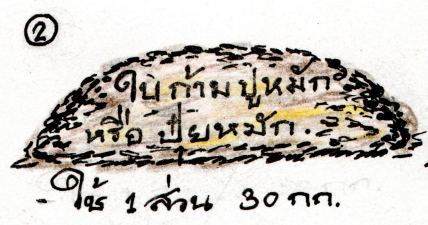 ②
ใบก้ามปูหมัก
หรือ ปุ๋ยหมัก.
- ใช้ 1 ส่วน 30 กก.